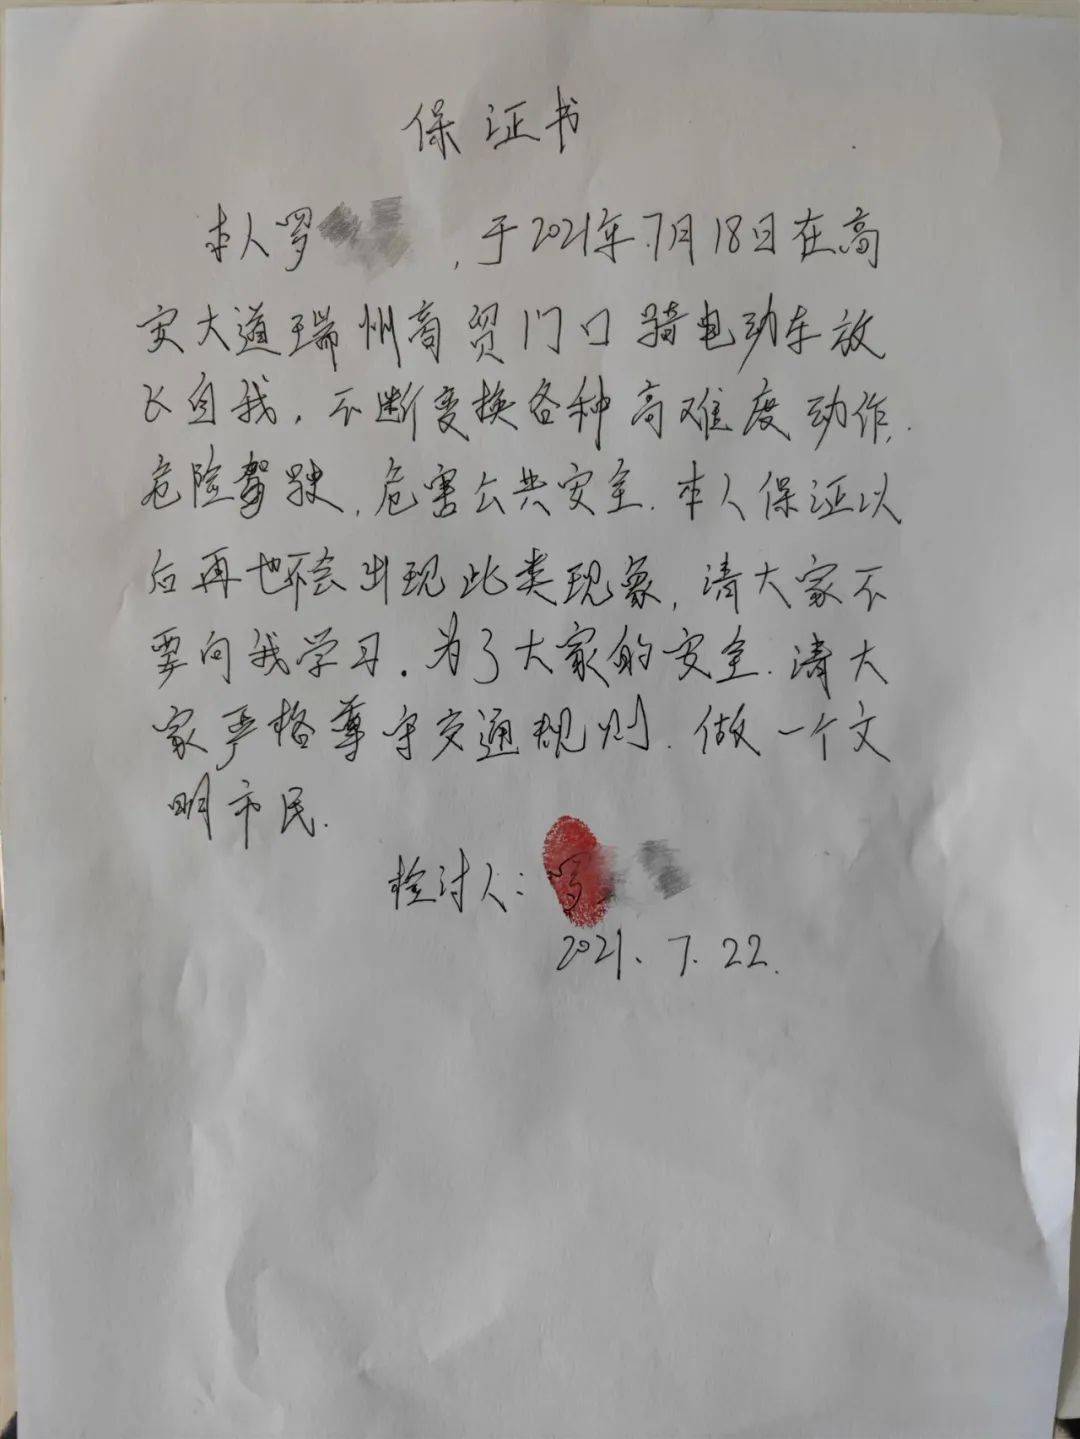 保证书
本人罗 ，于2021年7月18日在高
安大道瑞州商贸门口骑电动车放
飞自我，不断变换各种高难度动作，
危险驾驶，危害公共安全.本人保证以
后再也不会出现此类现象，请大家不
要向我学习.为了大家的安全.请大
家严格尊守交通规则.做一个文
明市民.
检讨人：罗
2021.7.22.